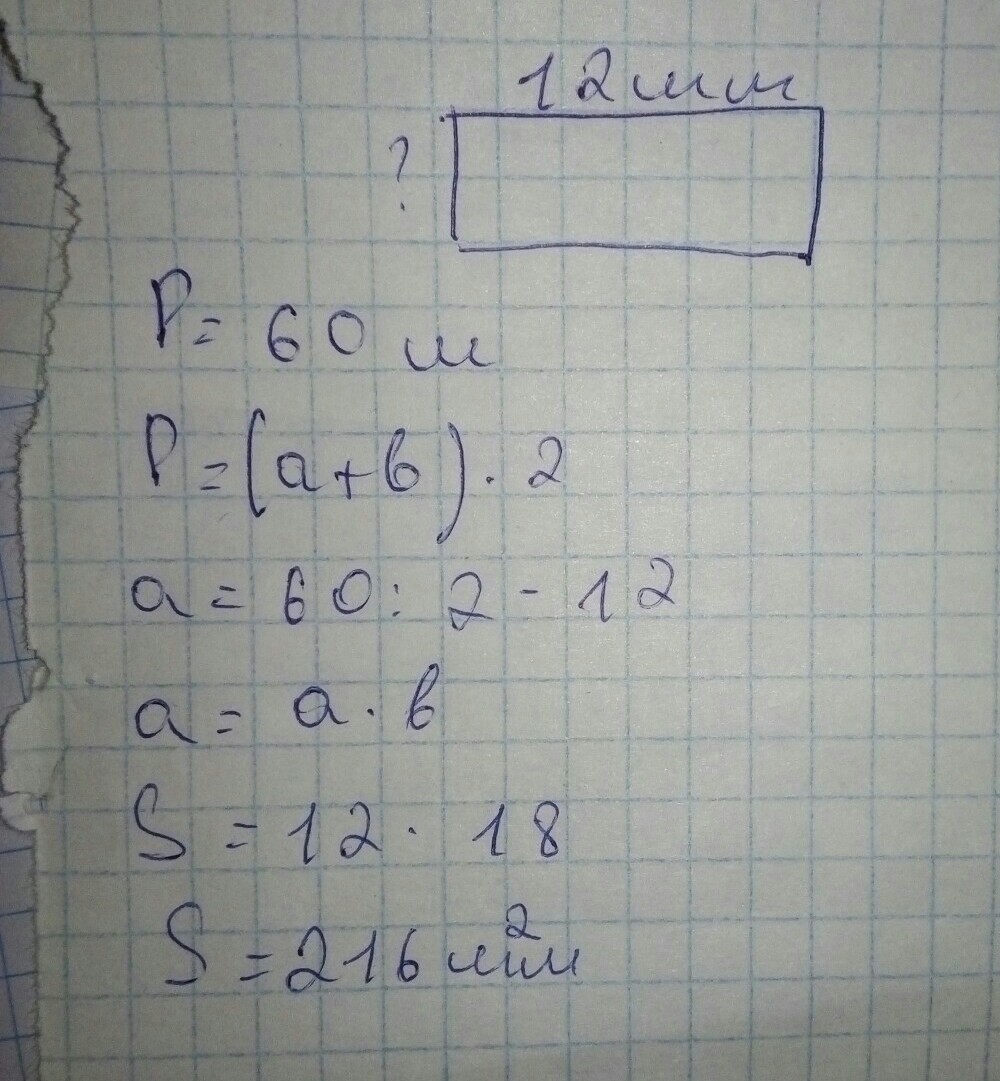 12мм
?
P= 60 м
P=(a+b)·2
a= 60:2-12
a= a·b
S=12·18
S=216мм²